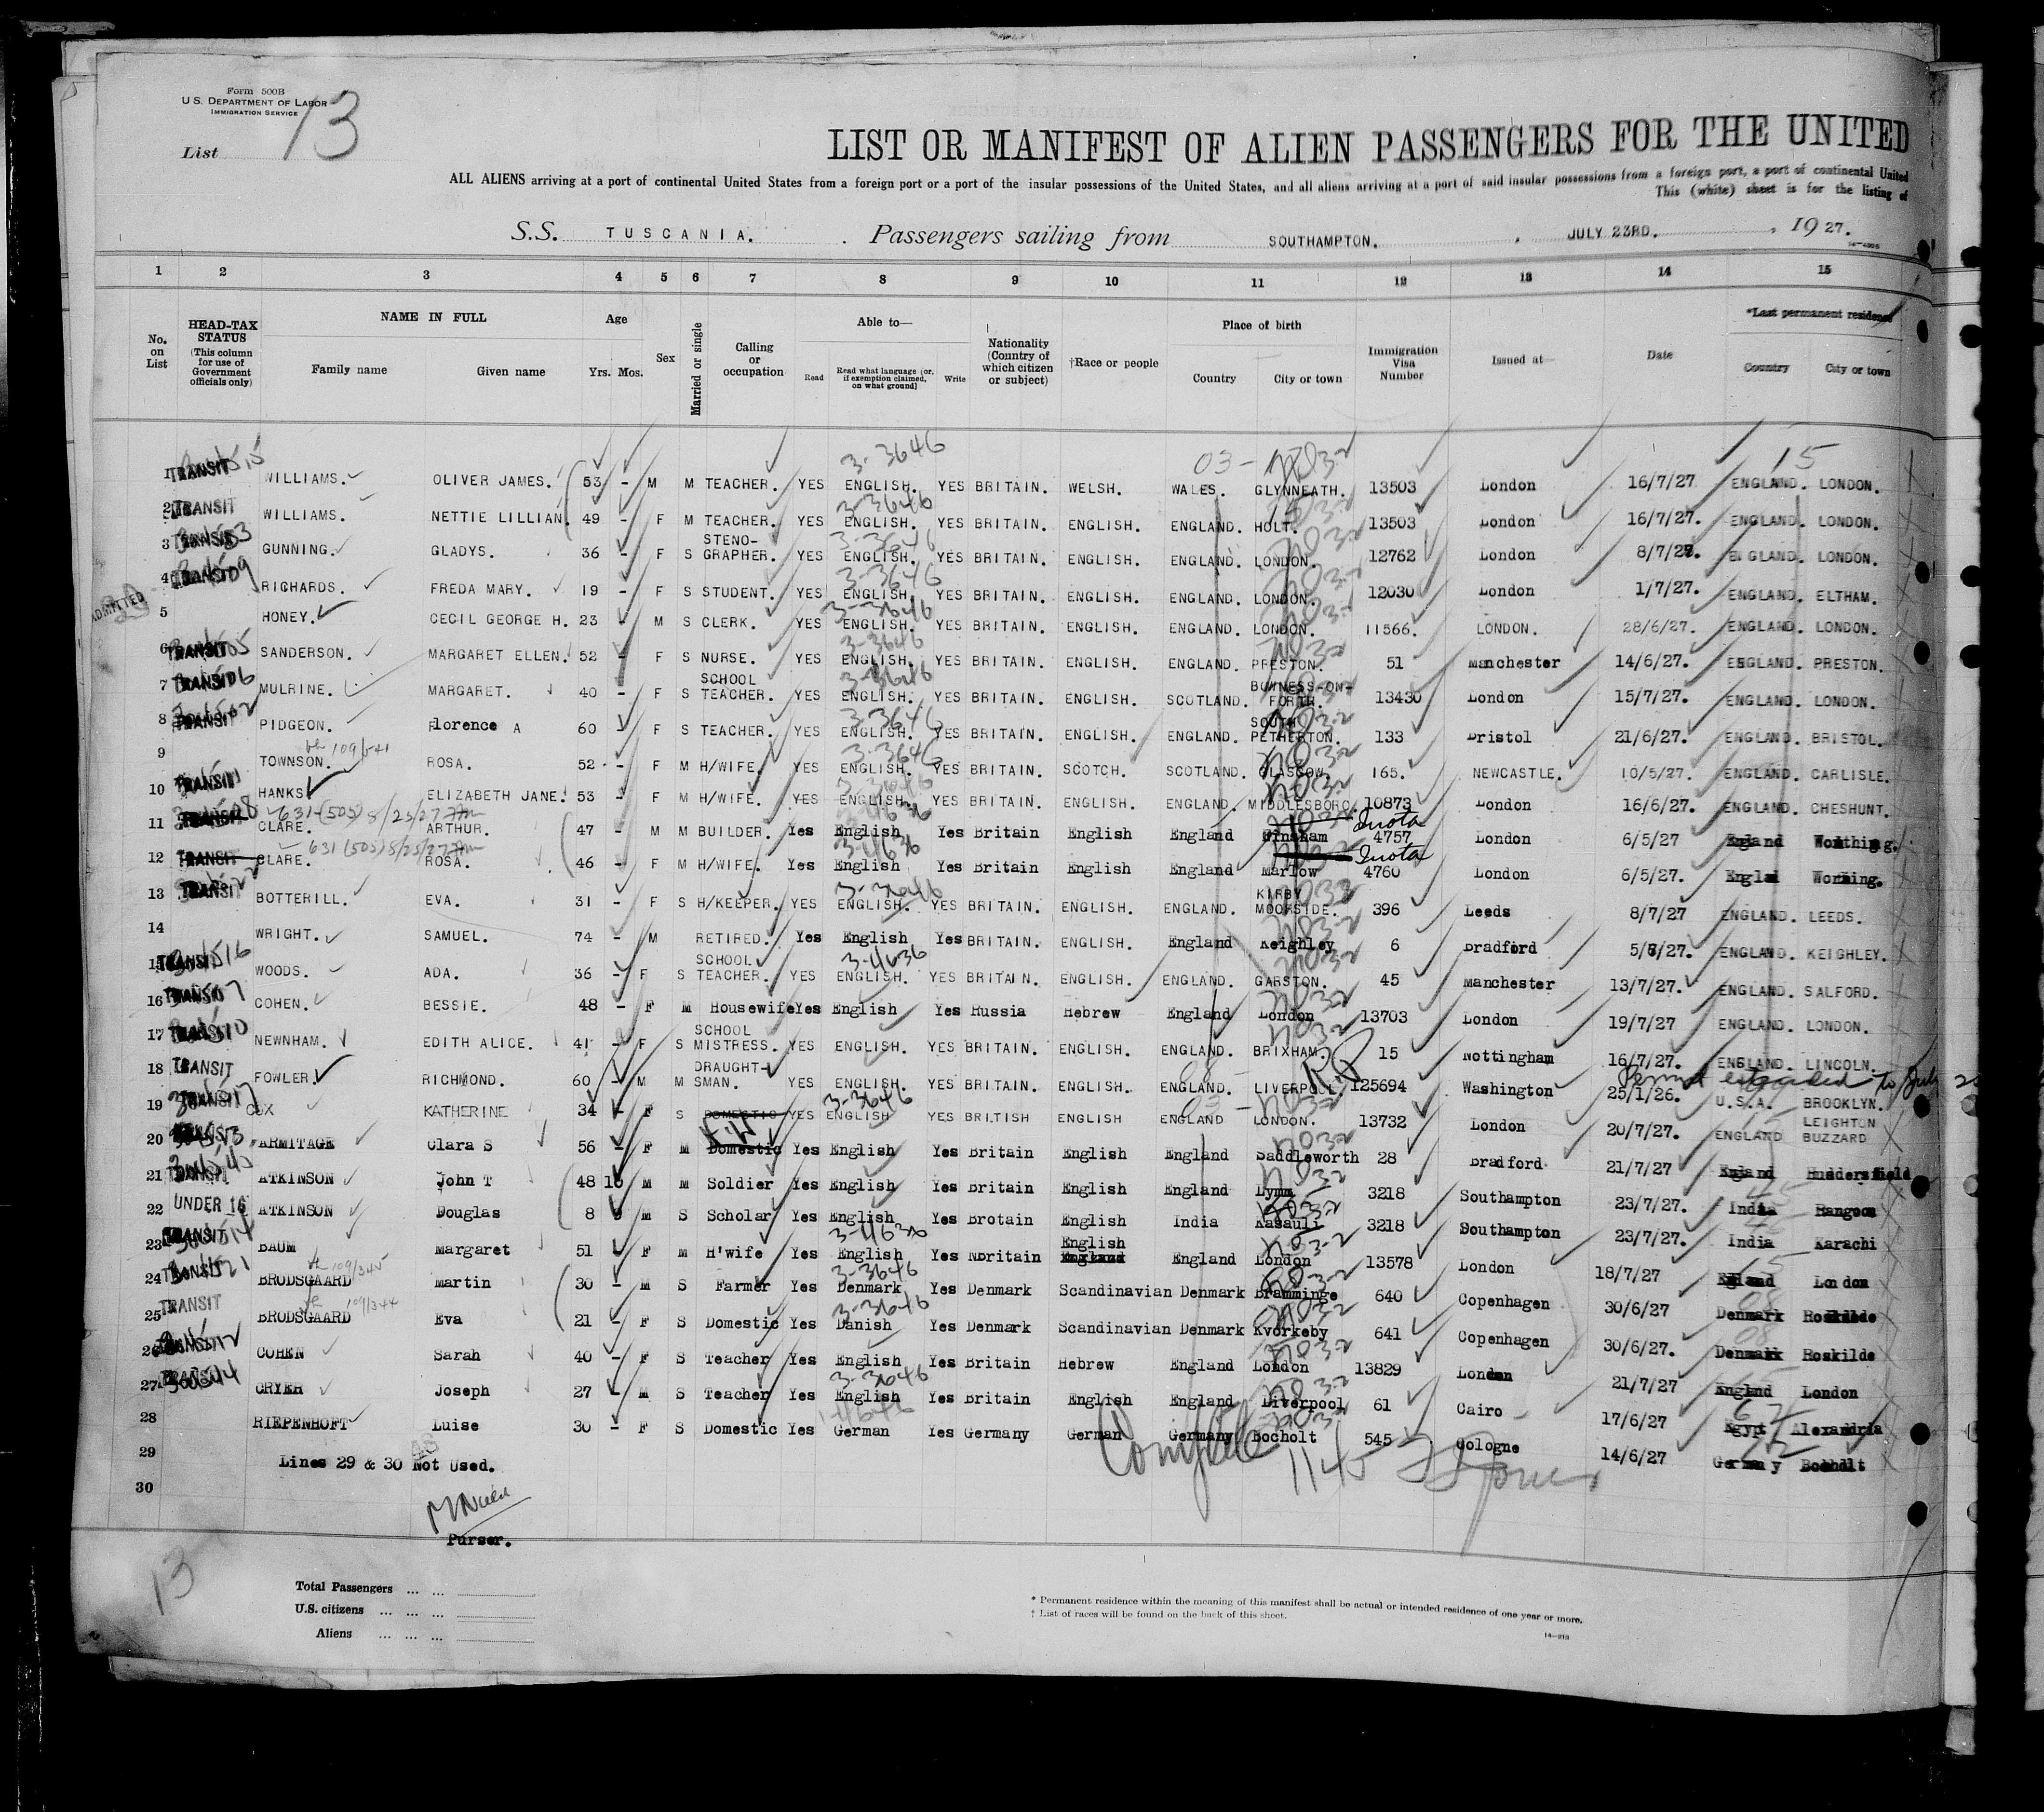 Form 500B
U.S. DEPARTMENT OF LABOR
IMMIGRATION SERVICE
List 13
LIST OR MANIFEST OF ALIEN PASSENGERS FOR THE UNITED
ALL ALIENS arriving at a port of continental United States from a foreign port or a port of the insular possessions of the United States, and all aliens arriving at a port of said insular possessions from a foreign port, a port of continental United
This (white) sheet is for the listing of
S.S. TUSCANIA. Passengers sailing from SOUTHAMPTON. , JULY 23RD. , 1927.
1 2 3 4 5 6 7 8 9 10 11 12 13 14 15
No. on List HEAD-TAX STATUS (This column for use of Government officials only) NAME IN FULL Family name Given name Age Yrs. Mos. Sex Married or single Calling or occupation Able to— Read Read what language [or, if exemption claimed, on what ground] Write Nationality (Country of which citizen or subject) †Race or people Place of birth Country City or town Immigration Visa Number Issued at— Date *Last permanent residence Country City or town
1 TRANSIT WILLIAMS. OLIVER JAMES. 53 - M M TEACHER. YES ENGLISH. YES BRITAIN. WELSH. WALES. GLYNNEATH. 13503 London 16/7/27 ENGLAND. LONDON.
2 TRANSIT WILLIAMS. NETTIE LILLIAN. 49 - F M TEACHER. YES ENGLISH. YES BRITAIN. ENGLISH. ENGLAND. HOLT. 13503 London 16/7/27. ENGLAND. LONDON.
3 GUNNING. GLADYS. 36 - F S STENO-GRAPHER. YES ENGLISH. YES BRITAIN. ENGLISH. ENGLAND. LONDON. 12762 London 8/7/27. ENGLAND. LONDON.
4 RICHARDS. FREDA MARY. 19 - F S STUDENT. YES ENGLISH. YES BRITAIN. ENGLISH. ENGLAND. LONDON. 12030 London 1/7/27. ENGLAND. ELTHAM.
ADMITTED 5 HONEY. CECIL GEORGE H. 23 - M S CLERK. YES ENGLISH. YES BRITAIN. ENGLISH. ENGLAND. LONDON. 11566. LONDON. 28/6/27. ENGLAND. LONDON.
6 TRANSIT SANDERSON. MARGARET ELLEN. 52 - F S NURSE. YES ENGLISH. YES BRITAIN. ENGLISH. ENGLAND. PRESTON. 51 Manchester 14/6/27. ENGLAND. PRESTON.
7 TRANSIT MULRINE. MARGARET. 40 - F S SCHOOL TEACHER. YES ENGLISH. YES BRITAIN. ENGLISH. SCOTLAND. BOWNESS-ON-FORTH. 13430 London 15/7/27. ENGLAND. LONDON.
8 TRANSIT PIDGEON. Florence A 60 F S TEACHER. YES ENGLISH. YES BRITAIN. ENGLISH. ENGLAND. SOUTH PETHERTON. 133 Bristol 21/6/27. ENGLAND. BRISTOL.
9 TOWNSON. ROSA. 52 - F M H/WIFE. YES ENGLISH. YES BRITAIN. SCOTCH. SCOTLAND. GLASGOW. 165. NEWCASTLE. 10/5/27. ENGLAND. CARLISLE.
10 TRANSIT HANKS ELIZABETH JANE. 53 - F M H/WIFE. YES ENGLISH. YES BRITAIN. ENGLISH. ENGLAND. MIDDLESBORO. 10873 London 16/6/27. ENGLAND. CHESHUNT.
11 CLARE. ARTHUR. 47 - M M BUILDER. Yes English Yes Britain English England 4757 London 6/5/27 England Worthing.
12 TRANSIT CLARE. ROSA. 46 - F M H/WIFE. Yes English Yes Britain English England Marlow 4760 London 6/5/27.
13 TRANSIT BOTTERILL. EVA. 31 - F S H/KEEPER. YES ENGLISH. YES BRITAIN. ENGLISH. ENGLAND. KIRBY MOORSIDE. 396 Leeds 8/7/27 ENGLAND. LEEDS.
14 WRIGHT. SAMUEL. 74 - M RETIRED. Yes English Yes BRITAIN. ENGLISH. England Keighley 6 Bradford ENGLAND. KEIGHLEY.
15 TRANSIT WOODS. ADA. 36 - F S SCHOOL TEACHER. YES ENGLISH. YES BRITAIN. ENGLISH. ENGLAND. GARSTON. 45 Manchester 13/7/27. ENGLAND. SALFORD.
16 COHEN. BESSIE. 48 - F M Housewife Yes English Yes Russia Hebrew England London 13703 London 19/7/27 ENGLAND. LONDON.
17 NEWNHAM. EDITH ALICE. 41 - F S SCHOOL MISTRESS. YES ENGLISH. YES BRITAIN. ENGLISH. ENGLAND. BRIXHAM. 15 Nottingham 16/7/27. ENGLAND. LINCOLN.
18 TRANSIT FOWLER. RICHMOND. 60 - M M DRAUGHT-SMAN. YES ENGLISH. YES BRITAIN. ENGLISH. ENGLAND. LIVERPOOL. 125694 Washington 25/1/26. U.S.A. BROOKLYN.
19 COX KATHERINE 34 - F S DOMESTIC YES ENGLISH YES BRITISH ENGLISH ENGLAND LONDON. 13732 London 20/7/27. ENGLAND LEIGHTON BUZZARD
20 ARMITAGE Clara S 56 - F M Domestic Yes English Yes Britain English England Saddleworth 28 Bradford 21/7/27 England Huddersfield
21 ATKINSON John T 48 10 M M Soldier Yes English Yes Britain English England Lynn 3218 Southampton 23/7/27. India Rangoon
22 UNDER 16 ATKINSON Douglas 8 M S Scholar Yes English Yes Brotain English India Kasauli 3218 Southampton 23/7/27. India Karachi
23 BAUM Margaret 51 - F M H'wife Yes English Yes Nbritain English England London 13578 London 18/7/27 England London
24 TRANSIT BRODSGAARD Martin 30 - M S Farmer Yes Denmark Yes Denmark Scandinavian Denmark Bramminge 640 Copenhagen 30/6/27 Denmark Roskilde
25 TRANSIT BRODSGAARD Eva 21 - F S Domestic Yes Danish Yes Denmark Scandinavian Denmark Kvorkeby 641 Copenhagen 30/6/27. Denmark Roskilde
26 COHEN Sarah 40 - F S Teacher Yes English Yes Britain Hebrew England London 13829 London 21/7/27 England London
27 CRYER Joseph 27 - M S Teacher Yes English Yes Britain English England Liverpool 61 Cairo 17/6/27 Egypt Alexandria
28 RIEPENHOFT Luise 30 - F S Domestic Yes German Yes Germany German Germany Bocholt 545 Cologne 14/6/27 Germany Bocholt
29 Lines 29 & 30 Not Used.
30
Purser.
13
Total Passengers ... ...
U.S. citizens ... ... ...
Aliens ... ... ...
* Permanent residence within the meaning of this manifest shall be actual or intended residence of one year or more.
† List of races will be found on the back of this sheet.